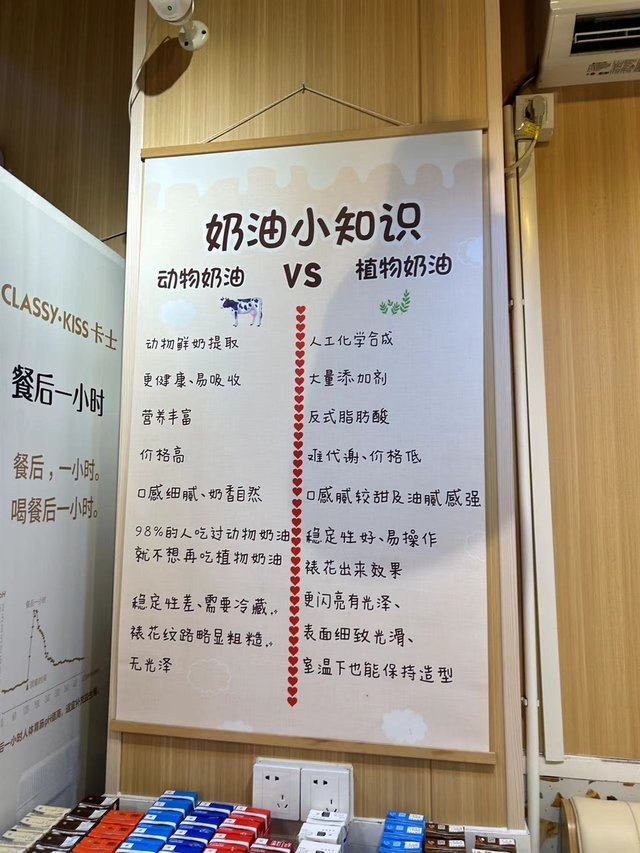 奶油小知识
动物奶油 VS 植物奶油
动物鲜奶提取
更健康、易吸收
营养丰富
价格高
口感细腻、奶香自然
98%的人吃过动物奶油
就不想再吃植物奶油
稳定性差、需要冷藏。
裱花纹路略显粗糙。
无光泽
人工化学合成
大量添加剂
反式脂肪酸
难代谢、价格低
口感腻较甜及油腻感强
稳定性好、易操作
裱花出来效果
更闪亮有光泽、
表面细致光滑、
室温下也能保持造型
CLASSY·KISS卡士
餐后一小时
餐后，一小时。
喝餐后一小时。